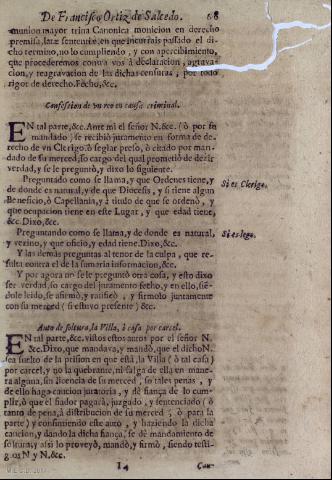 De Francisco Ortiz de Salcedo. 68
munion mayor trina Canonica monicion en derecho
premisa, latæ sententiæ, en que incurrais passado el di-
cho termino, no lo cumpliendo, y con apercibimiento,
que procederemos contra vos à declaracion, agrava-
cion, y reagravacion de las dichas censuras, por todo
rigor de derecho. Fecho, &c.
Confession de vn reo en causa criminal.
EN tal parte, &c. Ante mi el señor N. &c. (ò por su
mandado) se recibiò juramento en forma de de-
recho de vn Clerigo, ò seglar preso, ò citado por man-
dado de su merced, so cargo del qual prometiò de dezir
verdad, y se le preguntò, y dixo lo siguiente.
Preguntado como se llama, y que Ordenes tiene, y
de donde es natural, y de que Diocesis, y si tiene algun
Beneficio, ò Capellania, à titulo de que se ordenò, y
que ocupacion tiene en este Lugar, y que edad tiene,
&c. Dixo, &c.
Si es Clerigo.
Preguntando como se llama, y de donde es natural,
y vezino, y que oficio, y edad tiene. Dixo, &c.
Si es lego.
Y las demas preguntas al tenor de la culpa, que re-
sulta contra el de la sumaria informacion, &c.
Y por agora no se le preguntò otra cosa, y esto dixo
ser verdad, so cargo del juramento fecho, y en ello, sié-
dole leido, se afirmò, y ratificò, y firmolo juntamente
con su merced (si estuvo presente) &c.
Auto de soltura, la Villa, ò casa por carcel.
EN tal parte, &c. vistos estos autos por el señor N.
&c. Dixo, que mandava, y mandò, que el dicho N.
sea suelto de la prision en que està, la Villa (ò tal casa)
por carcel, y no la quebrante, ni salga de ella en mane-
ra alguna, sin licencia de su merced, so tales penas, y
de ello haga caucion juratoria, y dè fiança de lo cum-
plir, ò que el fiador pagarà, juzgado, y sentenciado (ò
tanto de pena, à distribucion de su merced, ò para la
parte) y consintiendo este auto, y haziendo la dicha
caucion, y dando la dicha fiança, se dè mandamiento de
soltura, y assi lo proveyò, mandò, y firmò, siendo testi-
gos N y N. &c.
I 4 Cau-